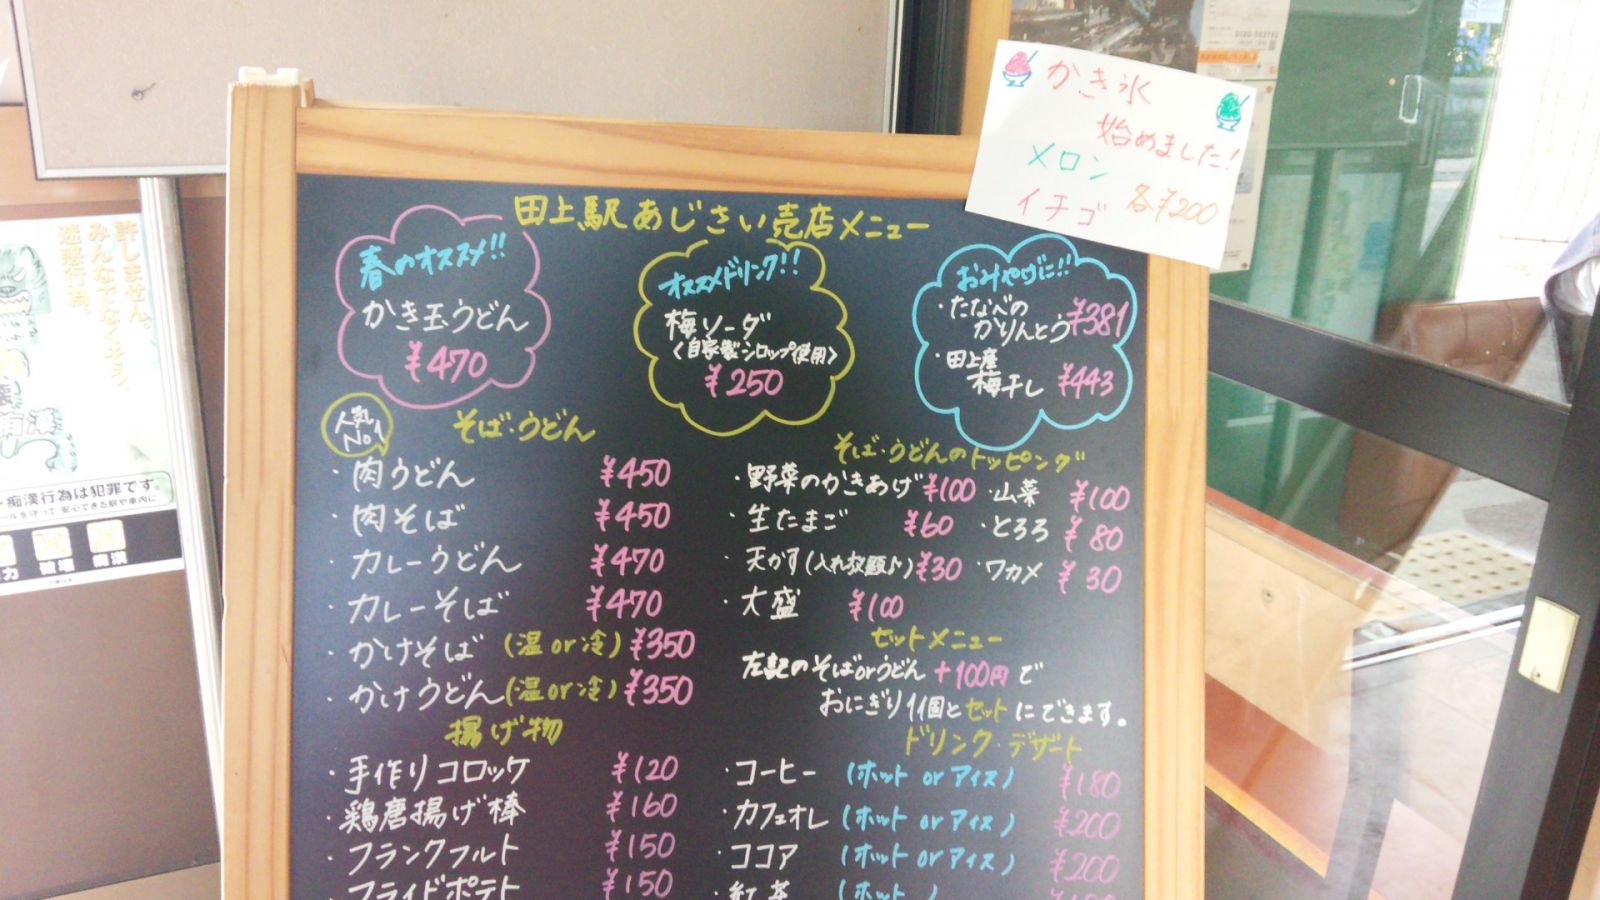 かき氷
始めました!
メロン
イチゴ
各¥200
田上駅あじさい売店メニュー
春のオススメ!!
かき玉うどん
¥470
オススメドリンク!!
梅ソーダ
〈自家製シロップ使用〉
¥250
おみやげに!!
・たなべの
かりんとう ¥381
・田上産
梅干し ¥443
人気
No1
そば・うどん
・肉うどん ¥450
・肉そば ¥450
・カレーうどん ¥470
・カレーそば ¥470
・かけそば (温or冷) ¥350
・かけうどん (温or冷) ¥350
揚げ物
・手作りコロッケ ¥120
・鶏唐揚げ棒 ¥160
・フランクフルト ¥150
・フライドポテト ¥150
そば・うどんのトッピング
・野菜のかきあげ ¥100 ・山菜 ¥100
・生たまご ¥60 ・とろろ ¥80
・天かす(入れ放題♪) ¥30 ・ワカメ ¥30
・大盛 ¥100
セットメニュー
左記のそばorうどん +100円で
おにぎり1個とセットにできます。
ドリンク・デザート
・コーヒー (ホット or アイス) ¥180
・カフェオレ (ホット or アイス) ¥200
・ココア (ホット or アイス) ¥200
・紅茶 (ホット )
許しません。
みんなでなくそう、
迷惑行為。
痴漢行為は犯罪です。